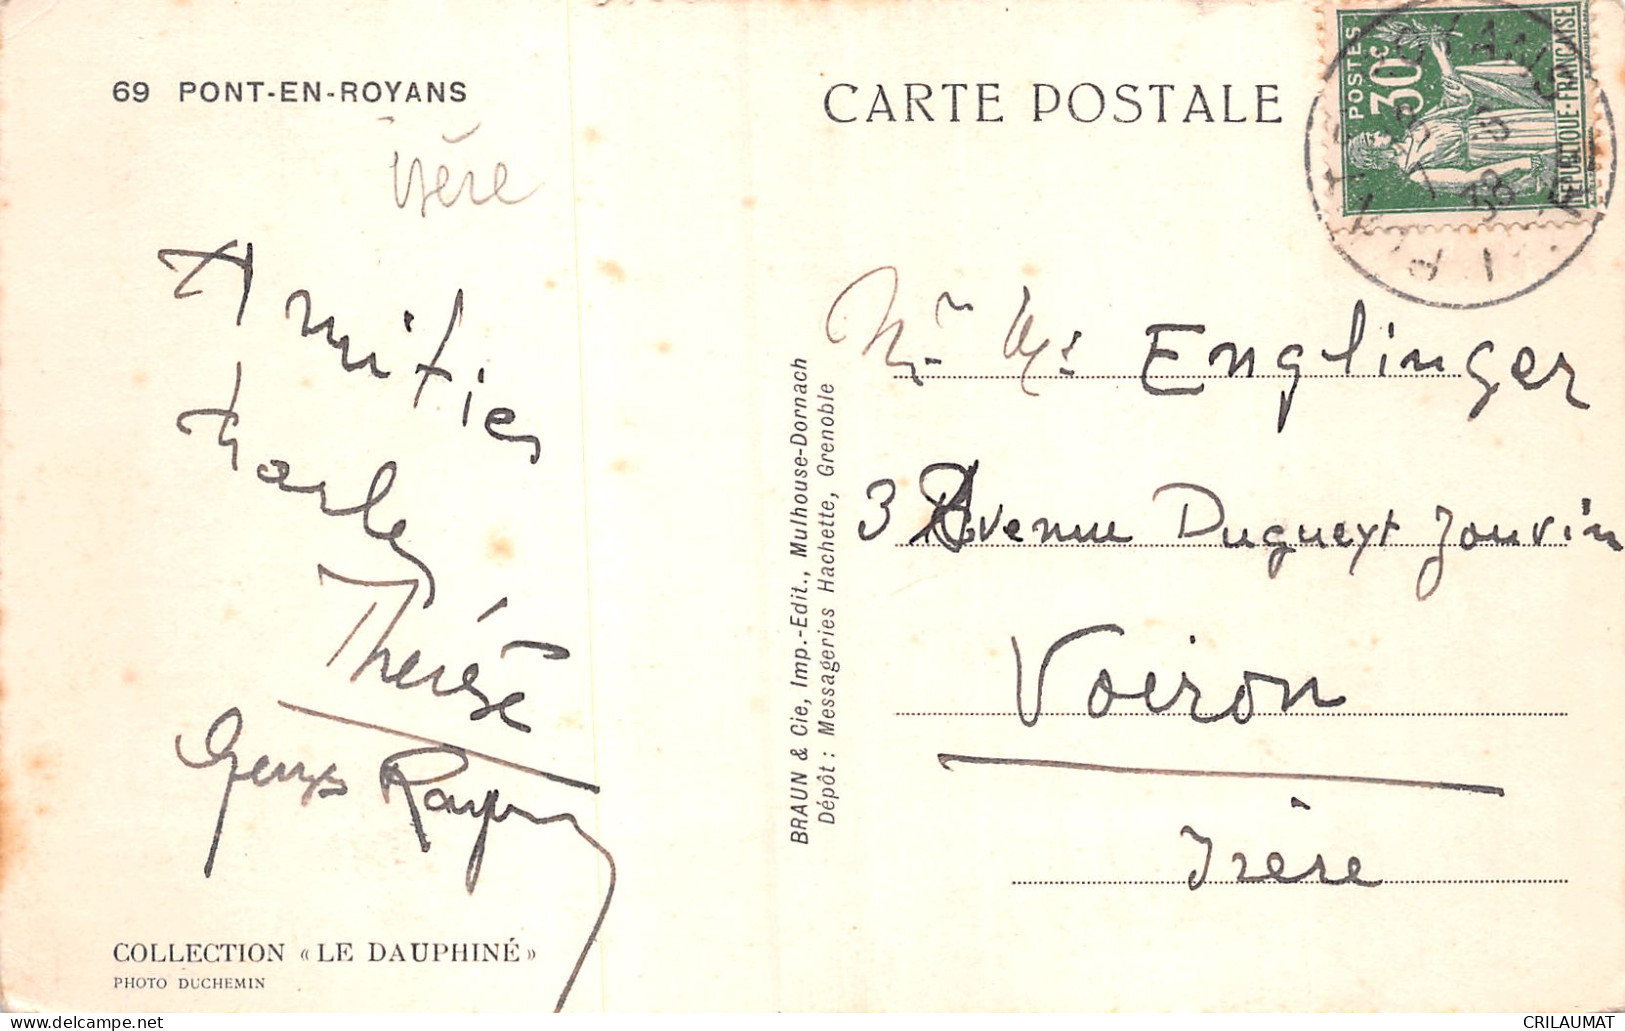 69 PONT-EN-ROYANS
Isère
Amitiés
Charles
Thérèse
COLLECTION « LE DAUPHINÉ »
PHOTO DUCHEMIN
BRAUN & Cie, Imp.-Edit., Mulhouse-Dornach
Dépôt : Messageries Hachette, Grenoble
CARTE POSTALE
POSTES
30c
REPUBLIQUE-FRANÇAISE
38
Englinger
3 Avenue Dugueyt Jouvin
Voiron
Isère
CRILAUMAT